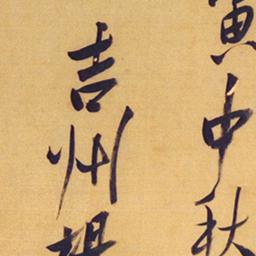 寅中秋
吉州